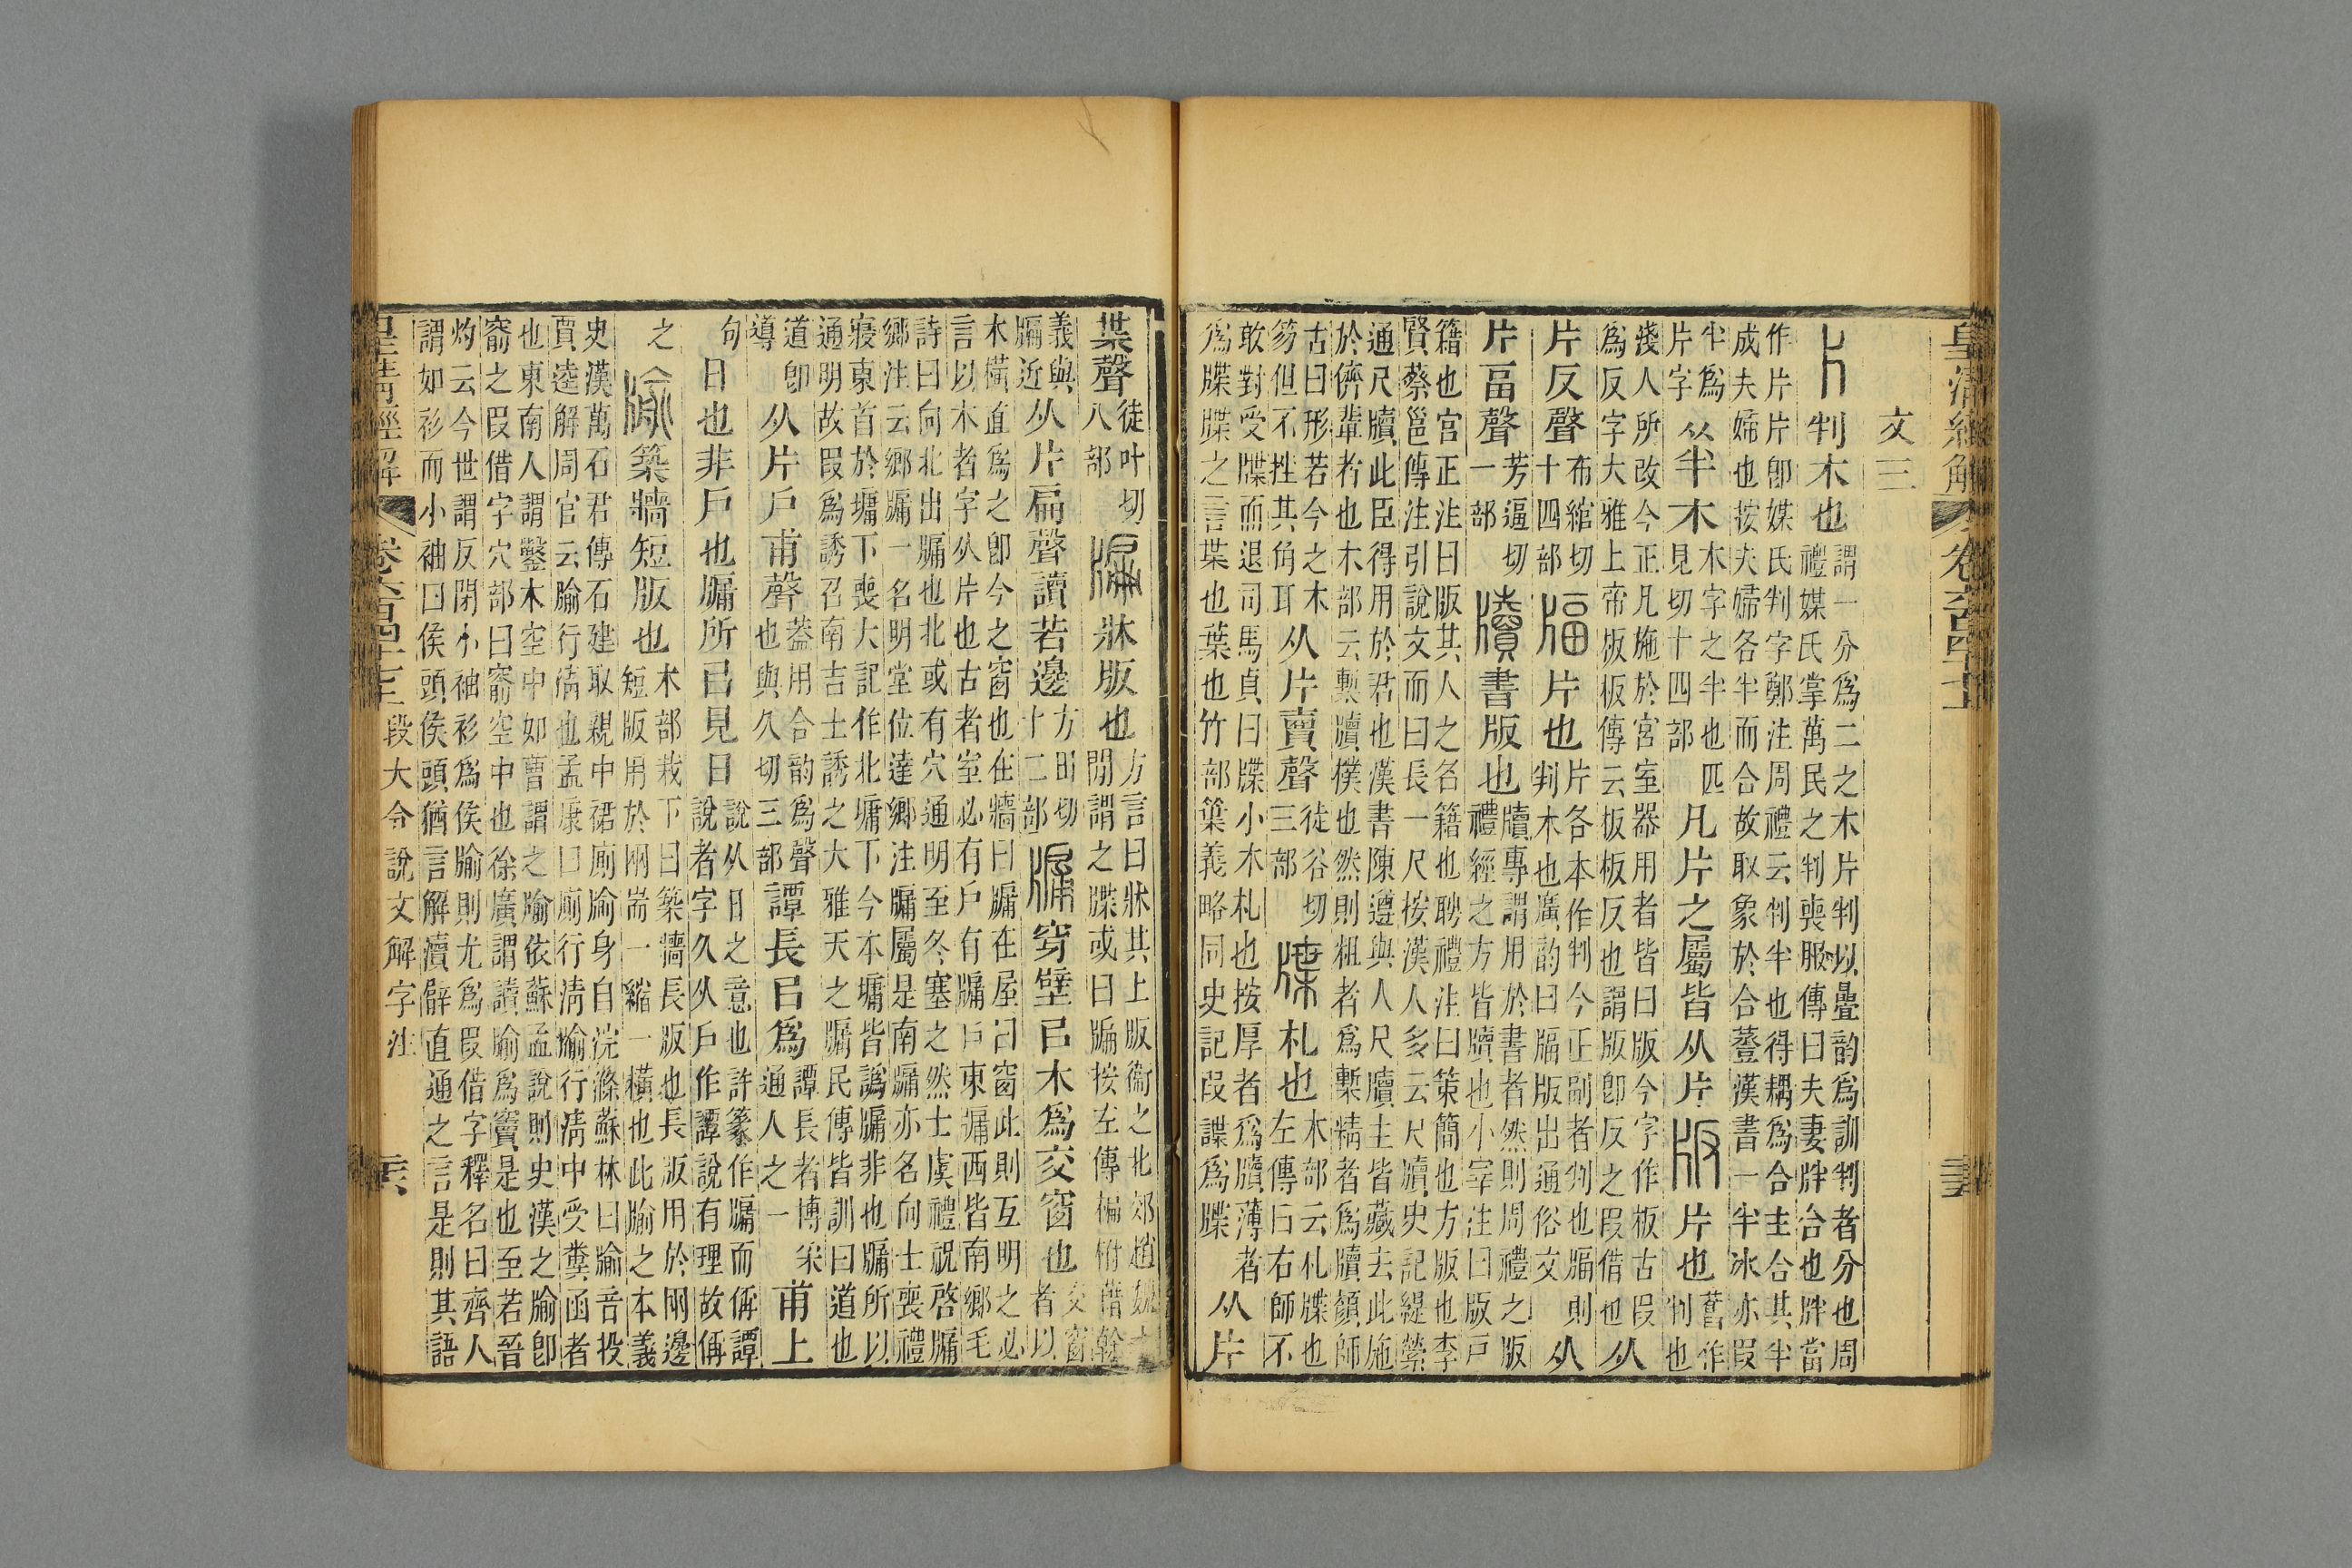 皇清經解 卷六百四十七
文三
片 判木也 謂一分爲二之木片判以曡韵爲訓判者分也周禮媒氏掌萬民之判喪服傳曰夫妻牉合也牉當
作片片卽媒氏判字鄭注周禮云判半也得耦爲合主合其半成夫婦也按夫婦各半而合故取象於合薹漢書一半冰亦叚
半爲片字 从半木 木字之半也匹見切十四部 凡片之屬皆从片 版 片也 舊作判也
淺人所改今正凡施於宮室器用者皆曰版今字作板古叚爲反字大雅上帝板板傳云板板反也謂版卽反之叚借也 从
片反聲 布綰切十四部 片也 片各本作判今正副者判也則判木也廣韵曰版出通俗文 从
片畐聲 芳逼切一部 牘 書版也 牘專謂用於書者然則周禮之版禮經之方皆牘也小宰注曰版戸
籍也宮正注曰版其人之名籍也聘禮注曰策簡也方版也李賢蔡邕傳注引說文而曰長一尺按漢人多云尺牘史記緹縈
通尺牘此臣得用於君也漢書陳遵與人尺牘主皆藏去此施於儕輩者也木部云槧牘樸也然則粗者爲槧精者爲牘顏師
古曰形若今之木笏但不挫其角耳 从片賣聲 徒谷切三部 牒 札也 木部云札牒也左傳曰右師不
敢對受牒而退司馬貞曰牒小木札也按厚者爲牘薄者爲牒牒之言枼也葉也竹部䈎義略同史記叚諜爲牒 从片
枼聲 徒叶切八部 牑 牀版也 方言曰牀其上版衞之北郊趙魏之閒謂之牒或曰牑按左傳楄柎藉榦
義與牑近 从片扁聲讀若邊 方田切十二部 牖 穿壁㠯木爲交窗也 交窗者以
木橫直爲之卽今之窗也在牆曰牖在屋曰窗此則互明之必言以木者字从片也古者室必有戸有牖戸東牖西皆南鄉毛
詩曰向北出牖也北或有穴通明至冬塞之然士虞禮祝啓牖鄉注云鄉牖一名明堂位達鄉注牖屬是南牖亦名向士喪禮
寢東首於墉下喪大記作北墉下今本墉皆譌牖非也牖所以通明故叚爲誘召南吉士誘之大雅天之牖民傳皆訓曰道也
道卽導 从片戸甫聲 蓋用合韵爲聲也與久切三部 譚長㠯爲 譚長者博采通人之一 甫上
句 日也非戸也牖所㠯見日 說从日之意也許篆作牖而偁譚說者字久从戸作譚說有理故偁
之 牏 築牆短版也 木部栽下曰築牆長版也長版用於网邊短版用於网耑一縮一橫也此牏之本義
史漢萬石君傳石建取親中裙廁牏身自浣滌蘇林曰牏音投賈逵解周官云牏行淸也孟康曰廁行淸牏行淸中受糞函者
也東南人謂鑿木空中如曹謂之牏依蘇孟說則史漢之牏卽窬之叚借字穴部曰窬空中也徐廣謂讀牏爲竇是也至若晉
灼云今世謂反閉小袖衫爲侯牏則尤爲叚借字釋名曰齊人謂如衫而小袖曰侯頭侯頭猶言解瀆臂直通之言是則其語
皇清經解 卷六百四十七 段大令說文解字注